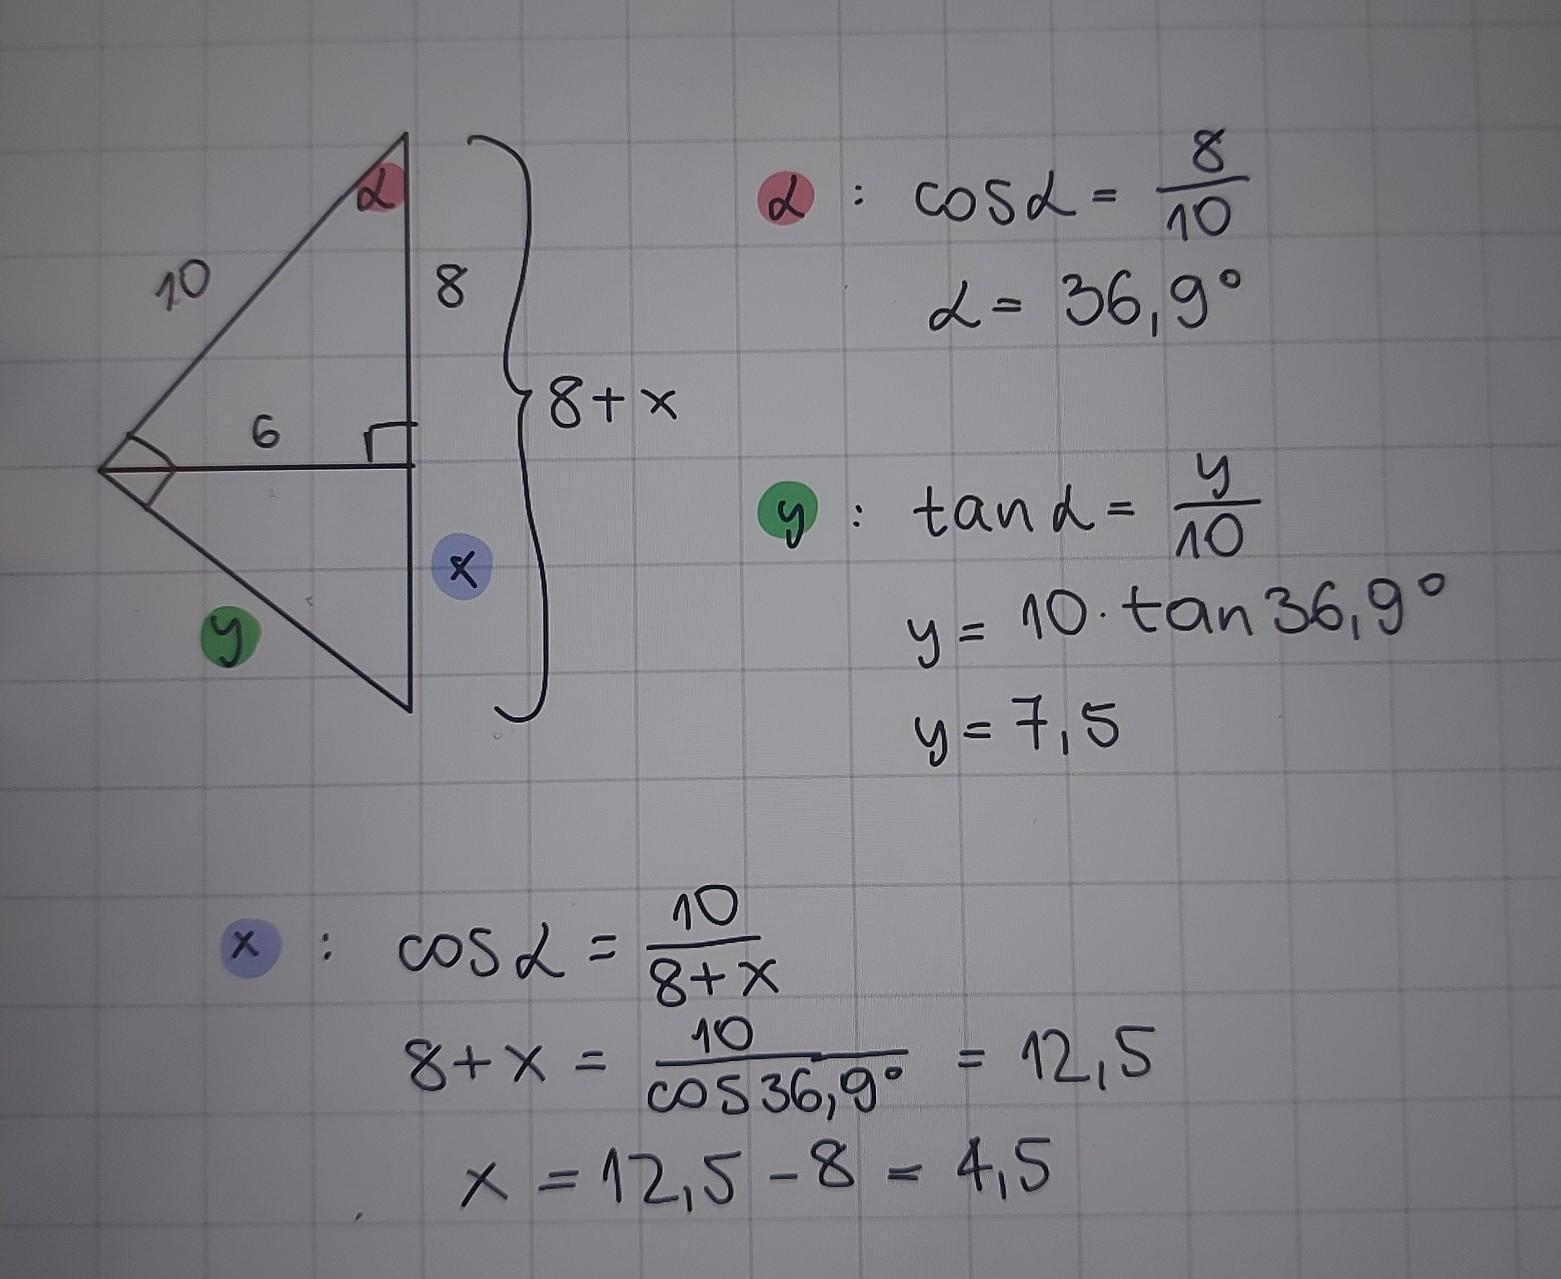 α
10
8
8+x
6
x
y
α : cosα = 8/10
α = 36,9°
y : tanα = y/10
y = 10·tan36,9°
y = 7,5
x : cosα = 10/(8+x)
8+x = 10/cos36,9° = 12,5
x = 12,5 - 8 = 4,5